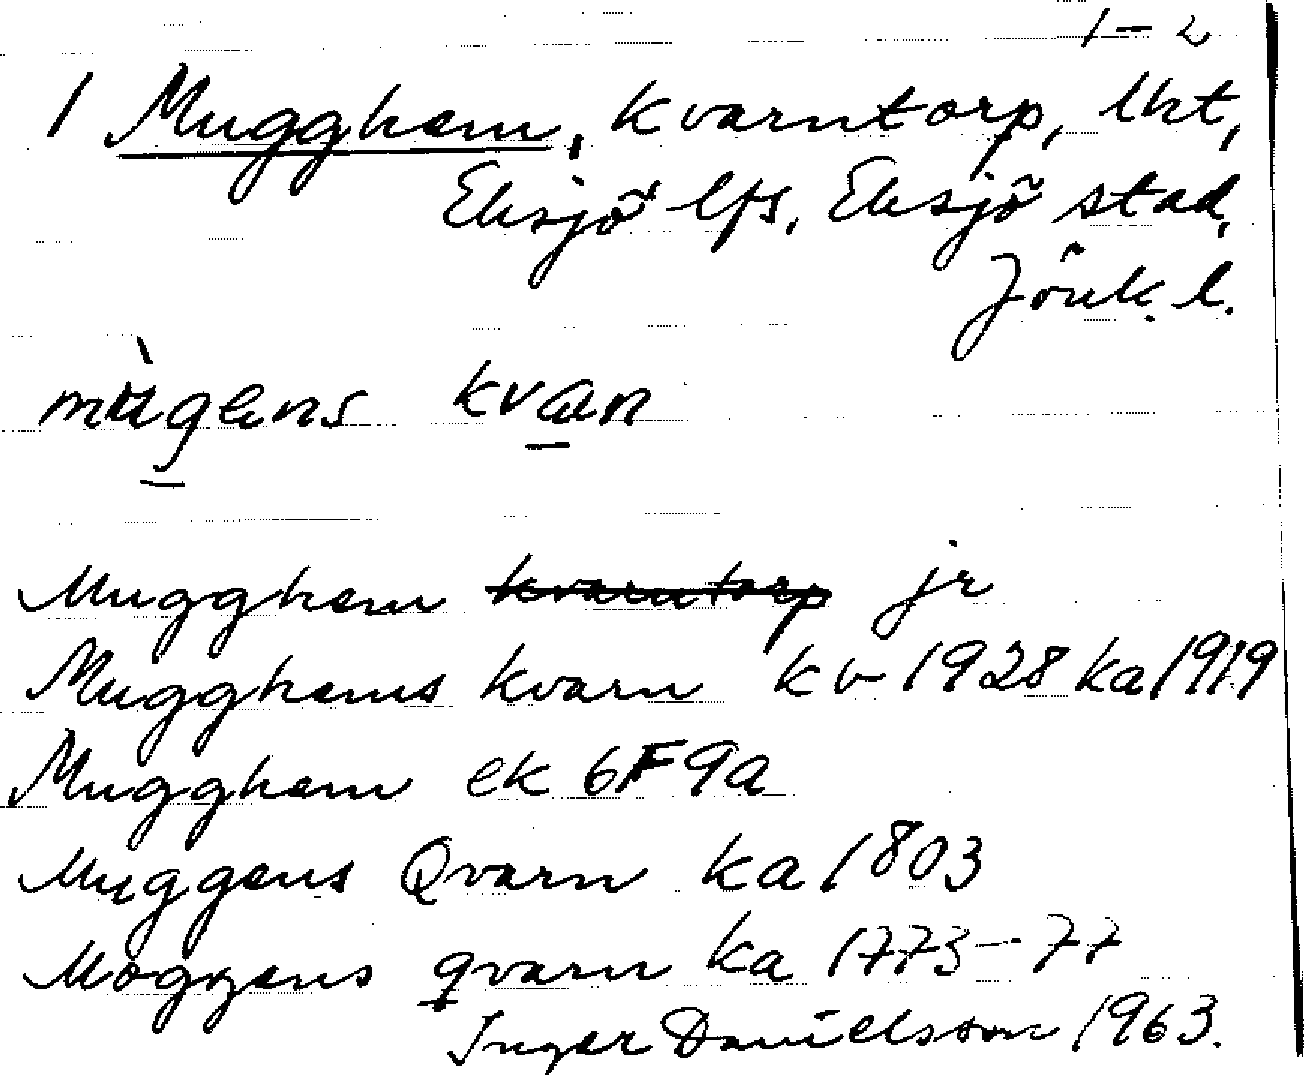 1-2
1 Mugghem, kvarntorp, lht,
Eksjö lfs, Eksjö stad,
Jönk. l.
mùgens kvan
Mugghem kvarntorp jr
Mugghems kvarn kv 1928 ka 1919
Mugghem ek 6F9a
Muggens Qvarn ka 1803
Moggens qvarn ka 1773-77
Inger Danielsson 1963.